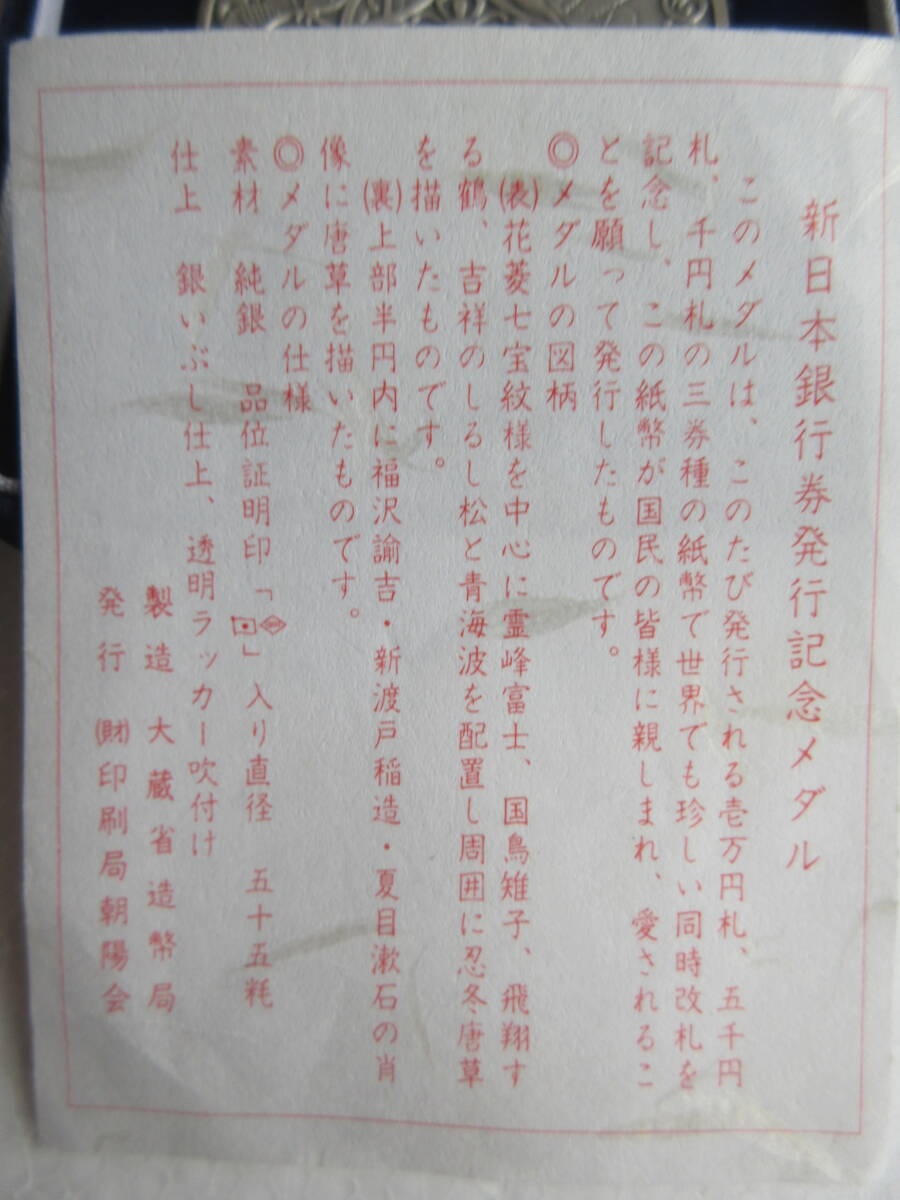 新日本銀行券発行記念メダル
このメダルは、このたび発行される壱万円札、五千円
札、千円札の三券種の紙幣で世界でも珍しい同時改札を
記念し、この紙幣が国民の皆様に親しまれ、愛されるこ
とを願って発行したものです。
◎メダルの図柄
㈹花菱七宝紋様を中心に霊峰富士、国鳥雉子、飛翔す
る鶴、吉祥のしるし松と青海波を配置し周囲に忍冬唐草
を描いたものです。
(裏)上部半円内に福沢諭吉・新渡戸稲造・夏目漱石の肖
像に唐草を描いたものです。
◎メダルの仕様
素材 純銀 品位証明印「」入り直径 五十五粍
仕上 銀いぶし仕上、透明ラッカー吹付け
製造 大蔵省造幣局
発行 ㈶印刷局朝陽会